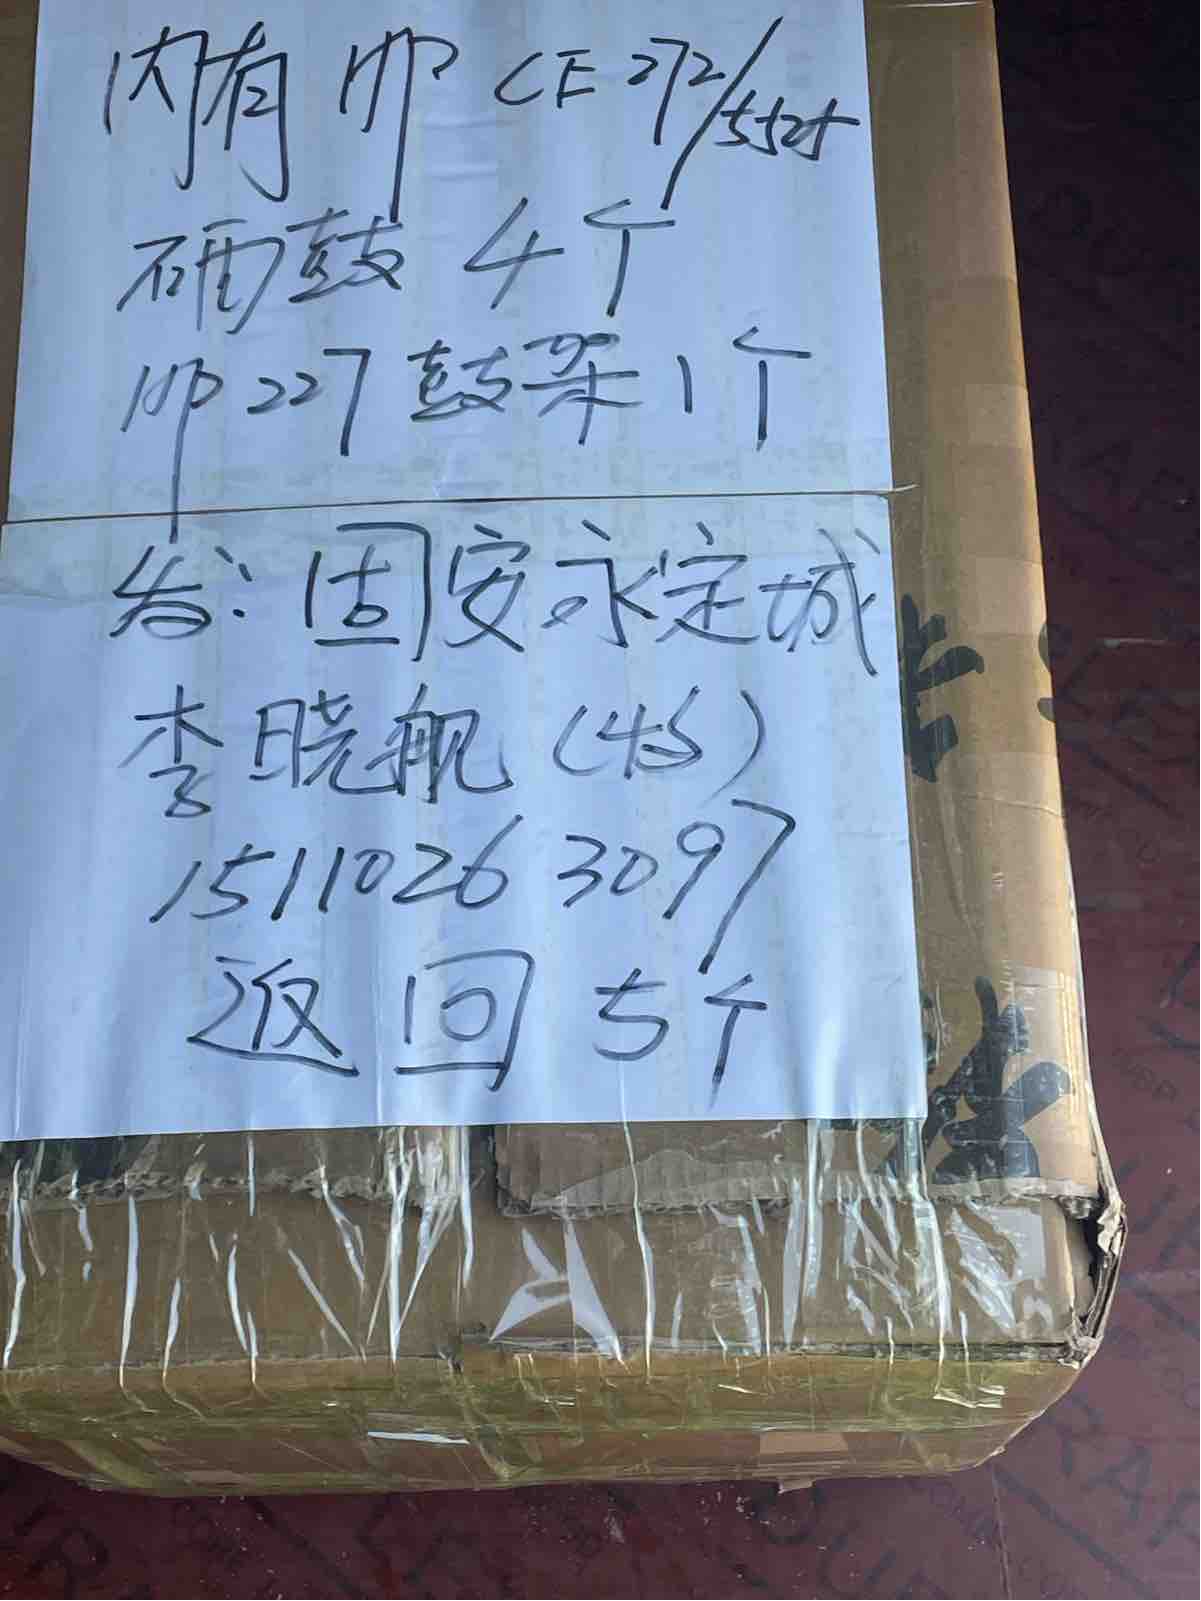 内有 HP CE272/5525
硒鼓 4个
HP 227 鼓架 1个
发: 固安永定城
李晓舰 (45)
15110263097
返回 5个